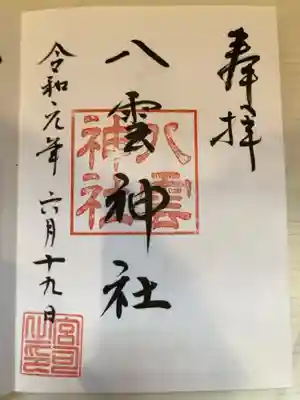 奉拝
八雲神社
八雲神社
令和元年 六月十九日
宮司之印